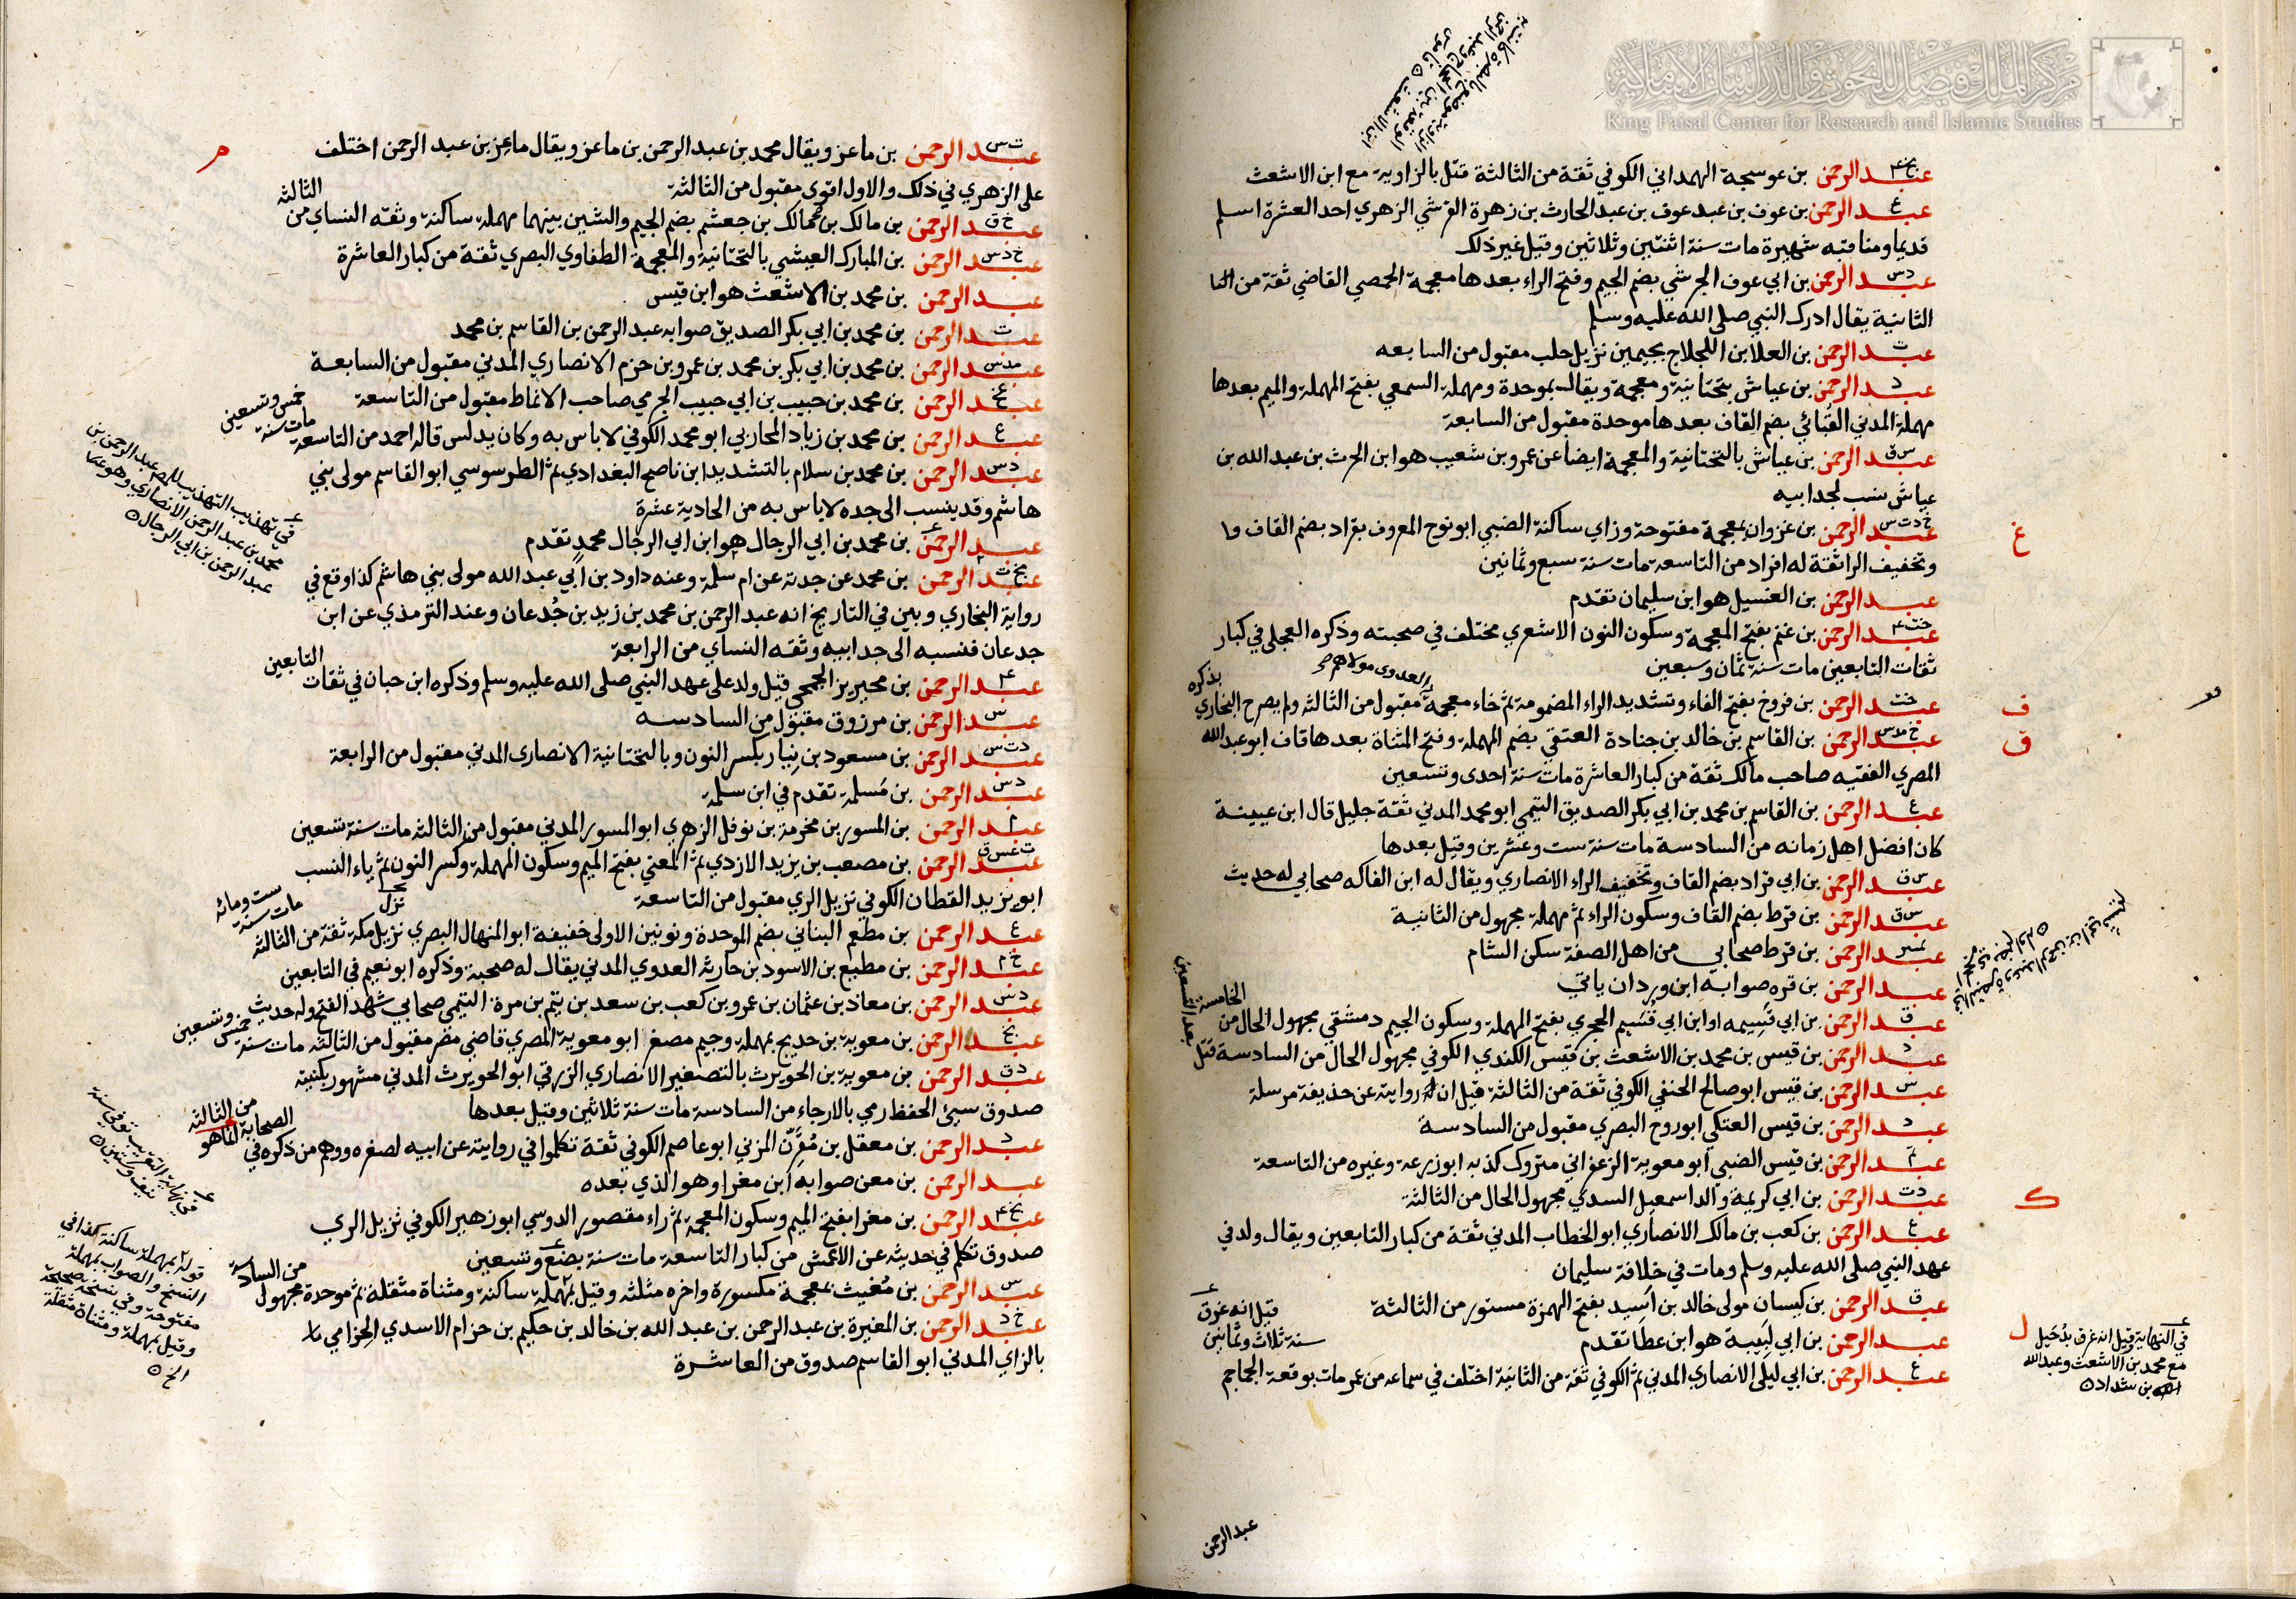 مركز الملك فيصل للبحوث والدراسات الإسلامية
King Faisal Center for Research and Islamic Studies
عبد الرحمن بن عوسجة الهمداني الكوفي ثقة من الثالثة قتل بالزاوية مع ابن الاشعث
عبد الرحمن بن عوف بن عبد عوف بن عبد الحارث بن زهرة القرشي الزهري احد العشرة اسلم
قديما ومناقبه شهيرة مات سنة اثنتين وثلاثين وقيل غير ذلك
عبد الرحمن بن ابي عوف الجرشي بضم الجيم وفتح الراء بعدها معجمة الحمصي القاضي ثقة من
الثانية يقال ادرك النبي صلى الله عليه وسلم
عبد الرحمن بن العلا بن اللجلاج بجيمين نزيل حلب مقبول من السابعه
عبد الرحمن بن عياش بتحتانية ومعجمة ويقال بموحدة ومهملة السمعي بفتح المهملة والميم بعدها
مهملة المدني القبائي بضم القاف بعدها موحدة مقبول من السابعة
عبد الرحمن بن عياش بالتحتانية والمعجمة ايضا عن عمرو بن شعيب هو ابن الحرث بن عبد الله بن
عياش نسب لجد ابيه
غ
عبد الرحمن بن غزوان بمعجمة مفتوحة وزاي ساكنة الضبي ابو نوح المعروف بقراد بضم القاف
وتخفيف الرا ثقة له افراد من التاسعة مات سنة سبع وثمانين
عبد الرحمن بن الغسيل هو ابن سليمان تقدم
عبد الرحمن بن غنم بفتح المعجمة وسكون النون الاشعري مختلف في صحبته وذكره العجلي في كبار
ثقات التابعين مات سنة ثمان وسبعين
العدوى مولاهم صح
ف
عبد الرحمن بن فروخ بفتح الفاء وتشديد الراء المضمومة ثم خاء معجمة مقبول من الثالثه ولم يصرح البخاري
بذكره
ق
عبد الرحمن بن القاسم بن خالد بن جنادة العتقي بضم المهملة وفتح المثناة بعدها قاف ابو عبد الله
المصري الفقيه صاحب مالك ثقة من كبار العاشرة مات سنة احدى وتسعين
عبد الرحمن بن القاسم بن محمد بن ابي بكر الصديق التيمي ابو محمد المدني ثقة جليل قال ابن عيينة
كان افضل اهل زمانه من السادسة مات سنة ست وعشرين وقيل بعدها
عبد الرحمن بن ابي قراد بضم القاف وتخفيف الراء الانصاري ويقال له ابن الفاكه صحابي له حديث
عبد الرحمن بن قرط بضم القاف وسكون الراء ثم مهملة مجهول من الثانية
عبد الرحمن بن قرط صحابي من اهل الصفة سكن الشام
عبد الرحمن بن قره صوابه ابن وردان ياتي
عبد الرحمن بن ابي قسيمه او ابن ابي قسيم الحجري بفتح المهملة وسكون الجيم دمشقي مجهول الحال من
الخامسة
عبد الرحمن بن قيس بن محمد بن الاشعث بن قيس الكندي الكوفي مجهول الحال من السادسة قتل
بعد التسعين
عبد الرحمن بن قيس ابو صالح الحنفي الكوفي ثقة من الثالثة قيل ان روايته عن حذيفة مرسلة
عبد الرحمن بن قيس العتكي ابو روح البصري مقبول من السادسة
عبد الرحمن بن قيس الضبي ابو معوية الزعفراني متروك كذبه ابو زرعة وغيره من التاسعة
ك
عبد الرحمن بن ابي كريمة والد اسمعيل السدي مجهول الحال من الثالثة
عبد الرحمن بن كعب بن مالك الانصاري ابو الخطاب المدني ثقة من كبار التابعين ويقال ولد في
عهد النبي صلى الله عليه وسلم ومات في خلافة سليمان
عبد الرحمن بن كيسان مولى خالد بن اسيد بفتح الهمزة مستور من الثالثة
ل
عبد الرحمن بن ابي لبيبة هو ابن عطا تقدم
عبد الرحمن بن ابي ليلى الانصاري المدني ثم الكوفي ثقة من الثانية اختلف في سماعه من عمر مات بوقعة الجماجم
قيل انه غرق
سنة ثلاث وثمانين
في النهاية وقيل انه غرق بدجيل
مع محمد بن الاشعث وعبد الله
بن شداد
عبد الرحمن
م
عبد الرحمن بن ماعز ويقال محمد بن عبد الرحمن بن ماعز ويقال ماعز بن عبد الرحمن اختلف
على الزهري في ذلك والاول اقوى مقبول من الثالثة
عبد الرحمن بن مالك بن مالك بن جعشم بضم الجيم والشين بينهما مهملة ساكنة وثقه النساي من
الثالثة
عبد الرحمن بن المبارك العيشي بالتحتانية والمعجمة الطفاوي البصري ثقة من كبار العاشرة
عبد الرحمن بن محمد بن الاشعث هو ابن قيس
عبد الرحمن بن محمد بن ابي بكر الصديق صوابه عبد الرحمن بن القاسم بن محمد
عبد الرحمن بن محمد بن ابي بكر بن محمد بن عمرو بن حزم الانصاري المدني مقبول من السابعة
عبد الرحمن بن محمد بن حبيب بن ابي حبيب الجرمي صاحب الانماط مقبول من التاسعة
عبد الرحمن بن محمد بن زياد المحاربي ابو محمد الكوفي لا باس به وكان يدلس قاله احمد من التاسعة
مات سنة
خمس وتسعين
عبد الرحمن بن محمد بن سلام بالتشديد ابن ناصح البغدادي ثم الطرسوسي ابو القاسم مولى بني
هاشم وقد ينسب الى جده لا باس به من الحادية عشرة
عبد الرحمن بن محمد بن ابي الرجال هو ابن ابي الرجال محمد تقدم
في تهذيب التهذيب للمصـ عبد الرحمن بن
محمد بن عبد الرحمن الانصاري وهو
عبد الرحمن بن ابي الرجال
عبد الرحمن بن محمد عن جدته عن ام سلمة وعنه داود بن ابي عبد الله مولى بني هاشم كذا وقع في
رواية البخاري وبين في التاريخ انه عبد الرحمن بن محمد بن زيد بن جدعان وعند الترمذي عن ابن
جدعان فنسبه الى جد ابيه وثقه النساي من الرابعة
عبد الرحمن بن محيريز الجمحي قيل ولد على عهد النبي صلى الله عليه وسلم وذكره ابن حبان في ثقات
التابعين
عبد الرحمن بن مرزوق مقبول من السادسه
عبد الرحمن بن مسعود بن نيار بكسر النون وبالتحتانية الانصارى المدني مقبول من الرابعة
عبد الرحمن بن مسلمة تقدم في ابن سلمة
عبد الرحمن بن المسور بن مخرمة بن نوفل الزهري ابو المسور المدني مقبول من الثالثه مات سنة تسعين
عبد الرحمن بن مصعب بن يزيد الازدي ثم المعني بفتح الميم وسكون المهملة وكسر النون ثم ياء النسب
ابو يزيد القطان الكوفي نزيل الري مقبول من التاسعة
عبد الرحمن بن مطعم البناني بضم الموحدة ونونين الاولى خفيفة ابو المنهال البصري نزيل مكة ثقة من الثالثة
مات سنة
ست ومائه
عبد الرحمن بن مطيع بن الاسود بن حارثه العدوي المدني يقال له صحبة وذكره ابو نعيم في التابعين
عبد الرحمن بن معاذ بن عثمان بن عمرو بن كعب بن سعد بن تيم بن مرة التيمي صحابي شهد الفتح وله حديث
عبد الرحمن بن معوية بن حديج بمهملة وجيم مصغرا ابو معوية المصري قاضي مصر مقبول من الثالثة مات سنة خمس وتسعين
عبد الرحمن بن معوية بن الحويرث بالتصغير الانصاري الزرقي ابو الحويرث المدني مشهور بكنيته
صدوق سيئ الحفظ رمي بالارجاء من السادسة مات سنة ثلاثين وقيل بعدها
عبد الرحمن بن معقل بن مقرن المزني ابو عاصم الكوفي ثقة تكلموا في روايته عن ابيه لصغره ووهم من ذكره في
الصحابة انما هو
من الثالثة
عبد الرحمن بن معن صوابه ابن مغرا وهو الذي بعده
عبد الرحمن بن مغرا بفتح الميم وسكون المعجمة ثم راء مقصور الدوسي ابو زهير الكوفي نزيل الري
صدوق تكلم في حديثه عن الاعمش من كبار التاسعة مات سنة بضع وتسعين
عبد الرحمن بن مغيث بمعجمة مكسورة واخره مثلثه وقيل بمهملة ساكنة ومثناة مثقلة ثم موحدة مجهول
من السادسة
عبد الرحمن بن المغيرة بن عبد الرحمن بن عبد الله بن خالد بن حكيم بن حزام الاسدي الحزامي
بالزاي المدني ابو القاسم صدوق من العاشرة
قوله بمهملة ساكنة كذا في
النسخ والصواب بمهملة
مفتوحة وفي نسخة صحيحة
وقيل بمهملة ومثناة مثقلة
الخ